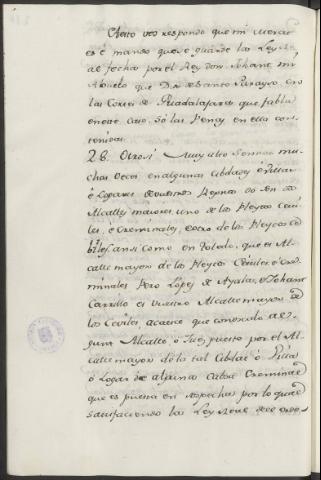 A esto vos respondo que mi merced
es é mando que se guarde la Ley
al fecha por el Rey don Johane mi
Abuelo que Dios de Santo Parayso, en
las Cortes de Guadalajara que fabla
en este caso só las Penas en ella con-
tenidas.
28. Otrosi Muy alto Sennor mu-
chas veces en algunas Cibdades é Villas
é Logares de vuestros Regnos do son
Alcalles maiores, uno de los Pleytos Cevi-
les, é Creminales, é otro de los Pleytos Ce-
biles, ansi como en Toledo, que es Al-
calle mayor de los Pleytos Ceviles é Cre-
minales Pero Lopez de Ayala, é Johane
Carrillo es vuestro Alcalle mayor de
los Ceviles acaece que conosculo al-
gunt Alcalle, ó Juez puesto por el Al-
calle mayor de la tal Cibdat ó Villa
ó Logar de alguna cabsa Creminal
que es puesta en sospecha por lo qual
satisfaciendo las Leyes